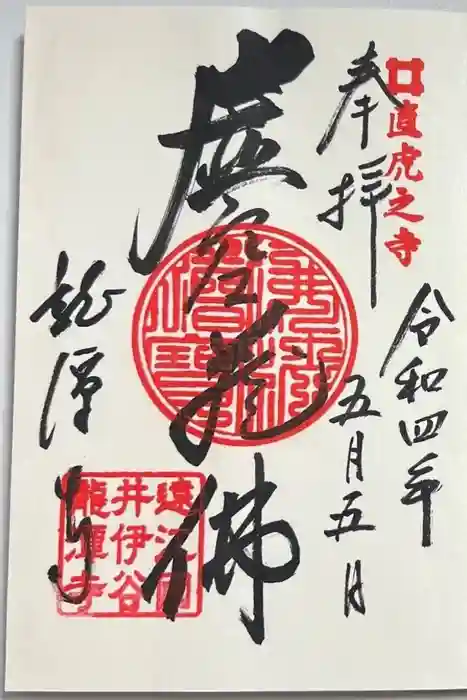 直虎之寺
奉拝
令和四年
五月五月
虚空蔵佛
佛法僧寶
龍潭寺
遠江國
井伊谷
龍潭寺